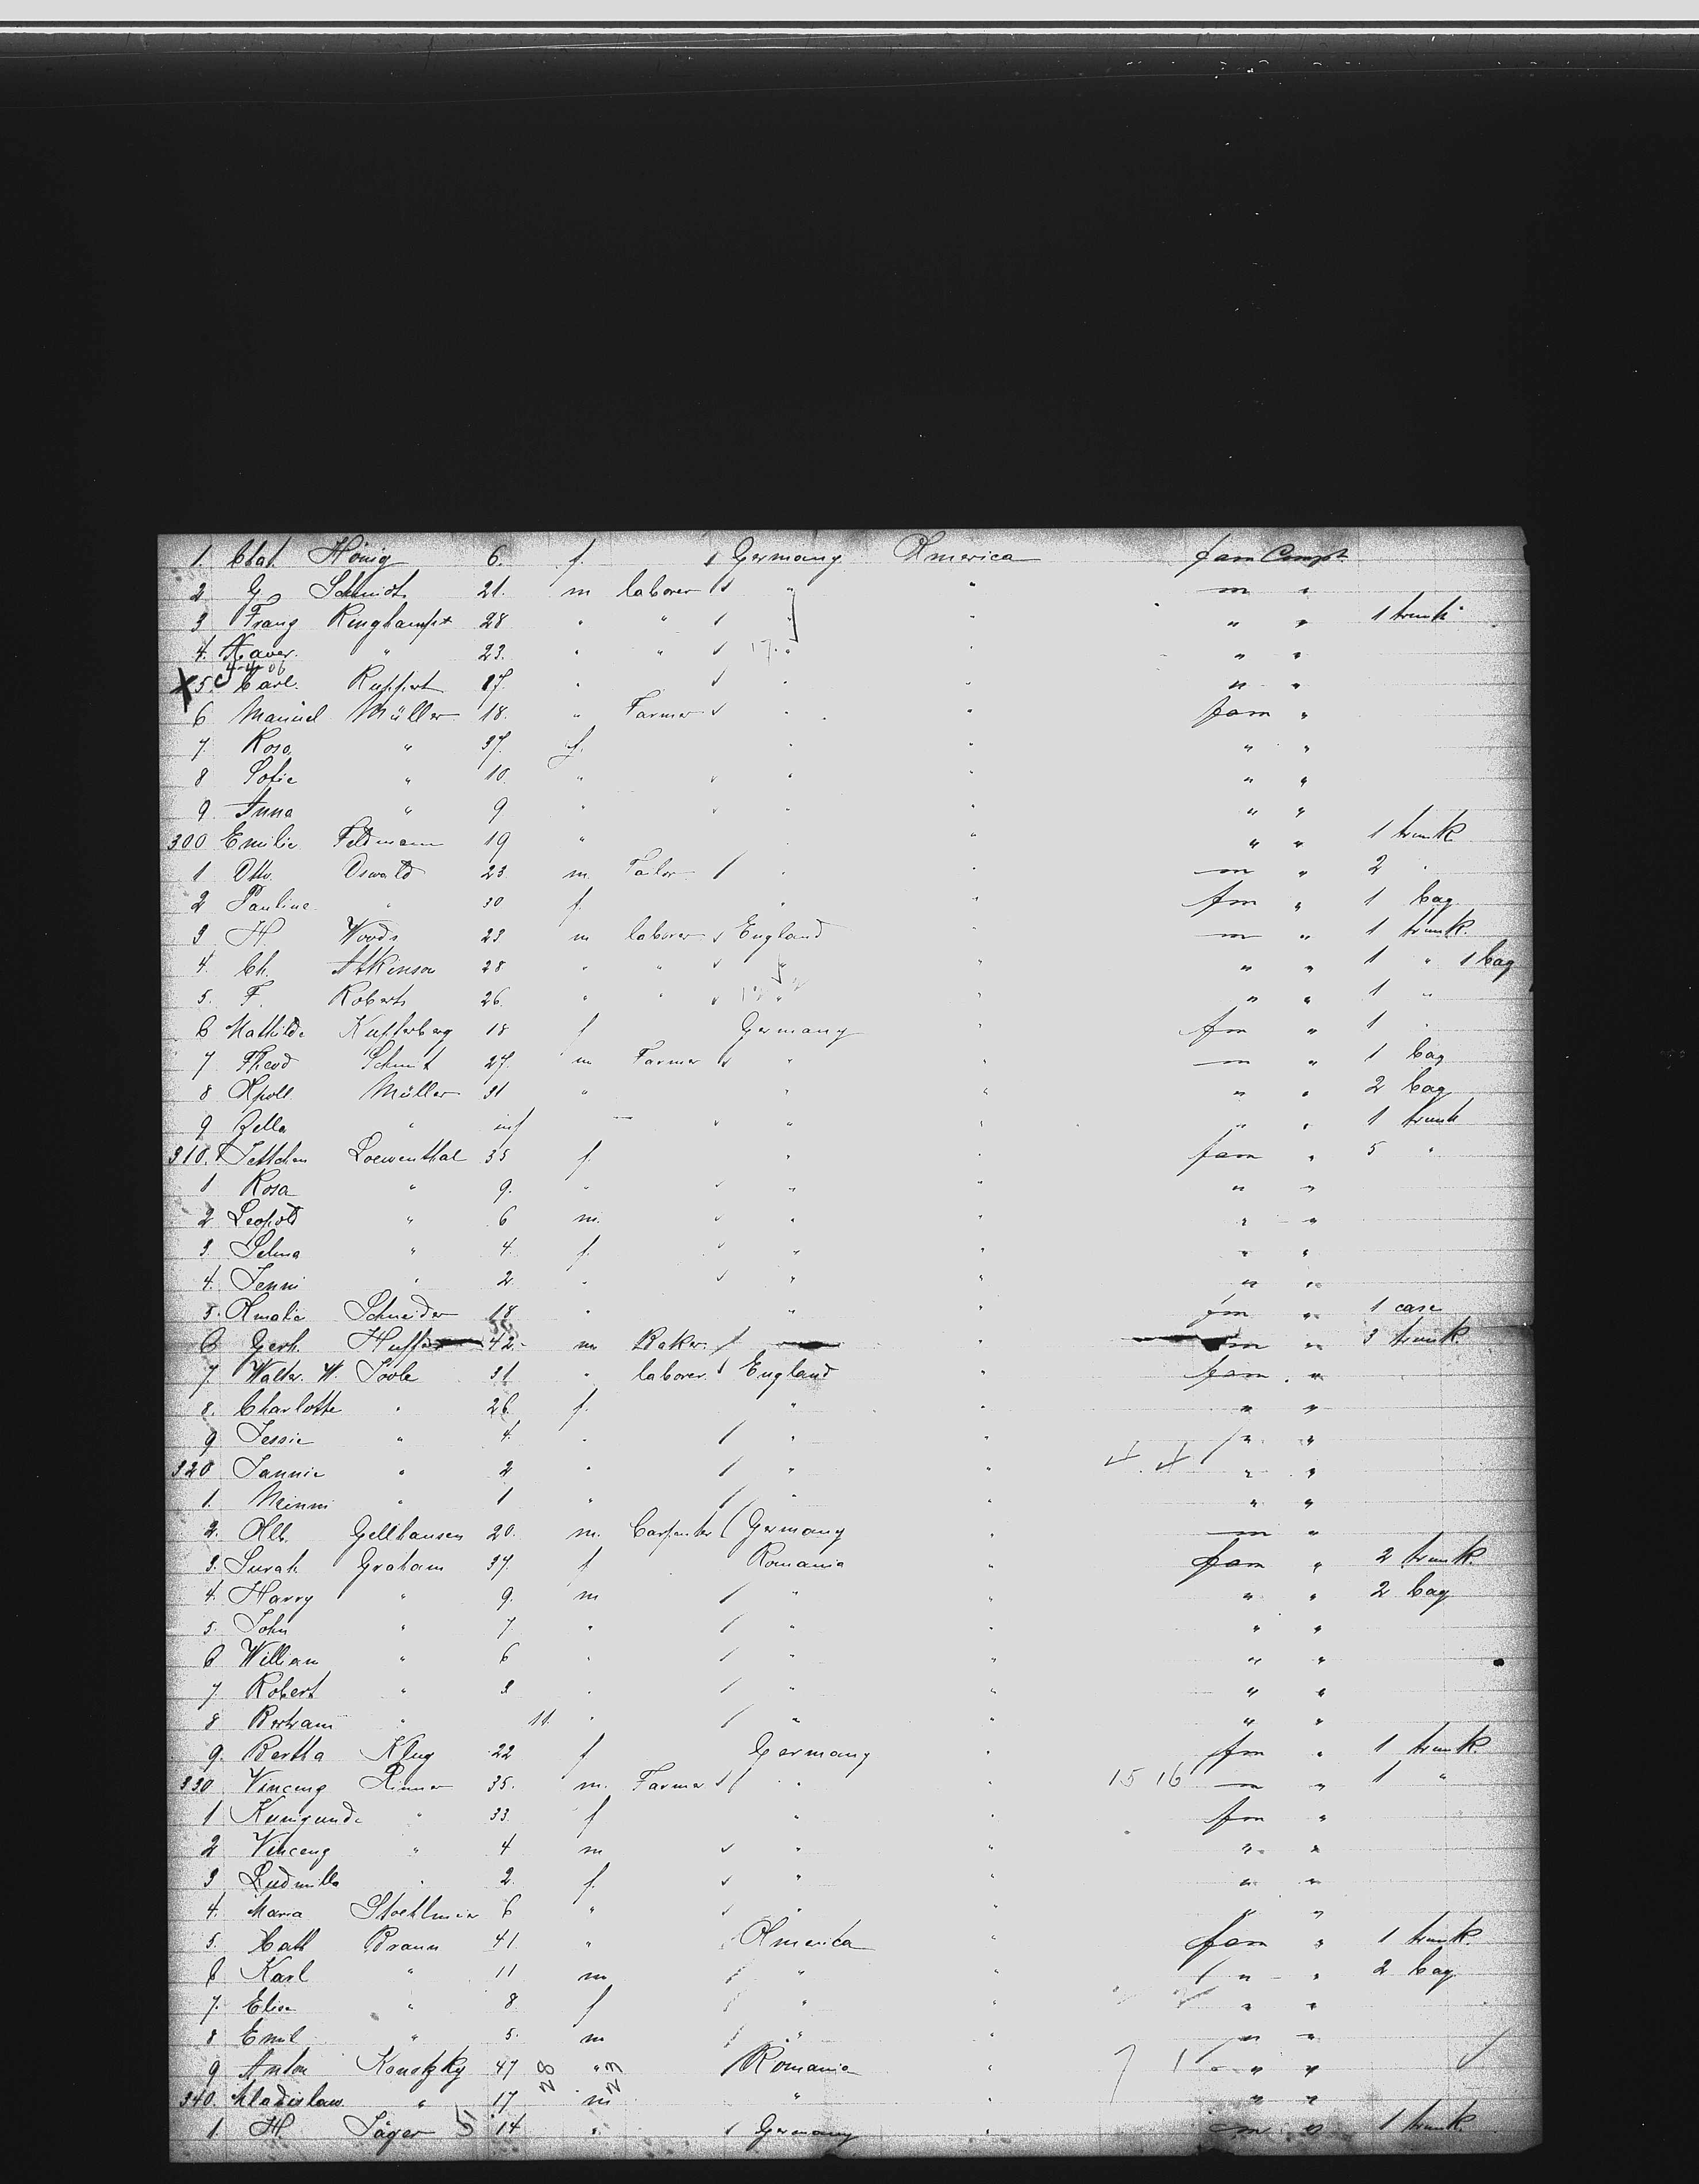 1. Hönig 6. f. Germany America fam Compt.
2 G. Schmidt 21. m laborer " " m "
3 Franz Ringhampt 28 " " " " " 1 trunk
4. Xaver. " 23. " " 17. " " " "
4-4-06
X 5. Carl. Ruppert " " " " "
6 Manuel Müller 18. " Farmer " " fam "
7. Rosa " 37. f. " " " "
8 Sofie " 10. " " " " "
9. Anna " 9 " " " " "
300 Emilie Feldmann 19 " " " " 1 trunk
1 Otto. Oswald 23. m. Tailor " " m " 2 "
2 Pauline " 30 f. " " fm " 1 bag
3 H. Woods 23 m laborer England " m " 1 trunk.
4. Ch. Atkinson 28 " " " " " " 1 " 1 bag
5. F. Roberts 26. " " " " " " 1 "
6 Mathilde Kupferberg 18 f Germany " fm " 1 "
7 Theod Schmit 27. m Farmer " " m " 1 bag
8 Apoll Müller 31 " " " " " 2 bag
9 Zella " inf " " " " 1 trunk
310. Jettchen Loewenthal 35 f. " " fam " 5 "
1 Rosa " 9. " " " " "
2 Leopold " 6 m. " " " "
3. Selma " 4. f. " " " "
4. Jenni " 2. " " " " "
5. Amalia Schneider 18. " " " fm " 1 case
6 Gerh. 42. m Baker. " m " 3 trunk.
7. Walter. W. 31. " laborer. England " fam. "
8. Charlotte " 26 f. " " " "
9 Jessie " 4. " " " " "
320 Fannie " 2 " " " " "
1. Minni " 1 " " " " "
2. Alb. Gellhausen 20. m. Carpenter Germany " m "
3. Sarah Graham 37. f Romania " fam " 2 trunk.
4. Harry " 9. m " " " " 2 bag
5. John " 7 " " " " "
6 William " 6 " " " " "
7. Robert " 3 " " " " "
8 Bertram " 11. " " " " "
9. Bertha Klug 22 f Germany " fm " 1 trunk.
330 Vincenz 35. m. Farmer " " 15 16 m " 1 "
1 Kunigunde " 33. f " " fm "
2 Vincenz " 4 m " " " "
3 Ludmilla " 2. f. " " " "
4. Maria 6 " " " " "
5. Cath Braun 41. " America " fam " 1 trunk.
6 Karl " 11 m " " " " 2 bag
7. Elise " 8. f " " " "
8 Emil " 5. m " " " "
9 Anton Konetzky 47 28 " 23 Romania " " "
340. Wladislaw " 17 m " " " "
1. H. Jäger 5 14 " Germany " m " 1 trunk.